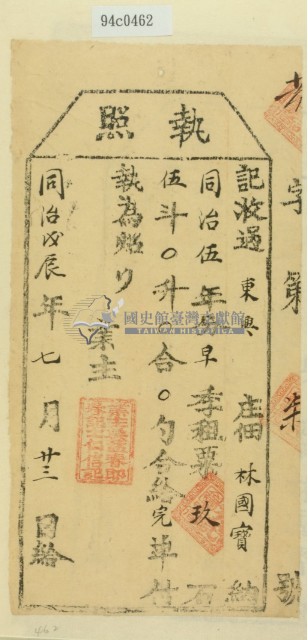 94c0462
執照
字第柒號
記收過東興庄佃林國寶納
同治伍年早季租粟玖石
伍斗〇升〇合〇勺合給完單付
執為照
業主
同治戊辰年七月廿三日給
國史館臺灣文獻館
TAIWAN HISTORICA